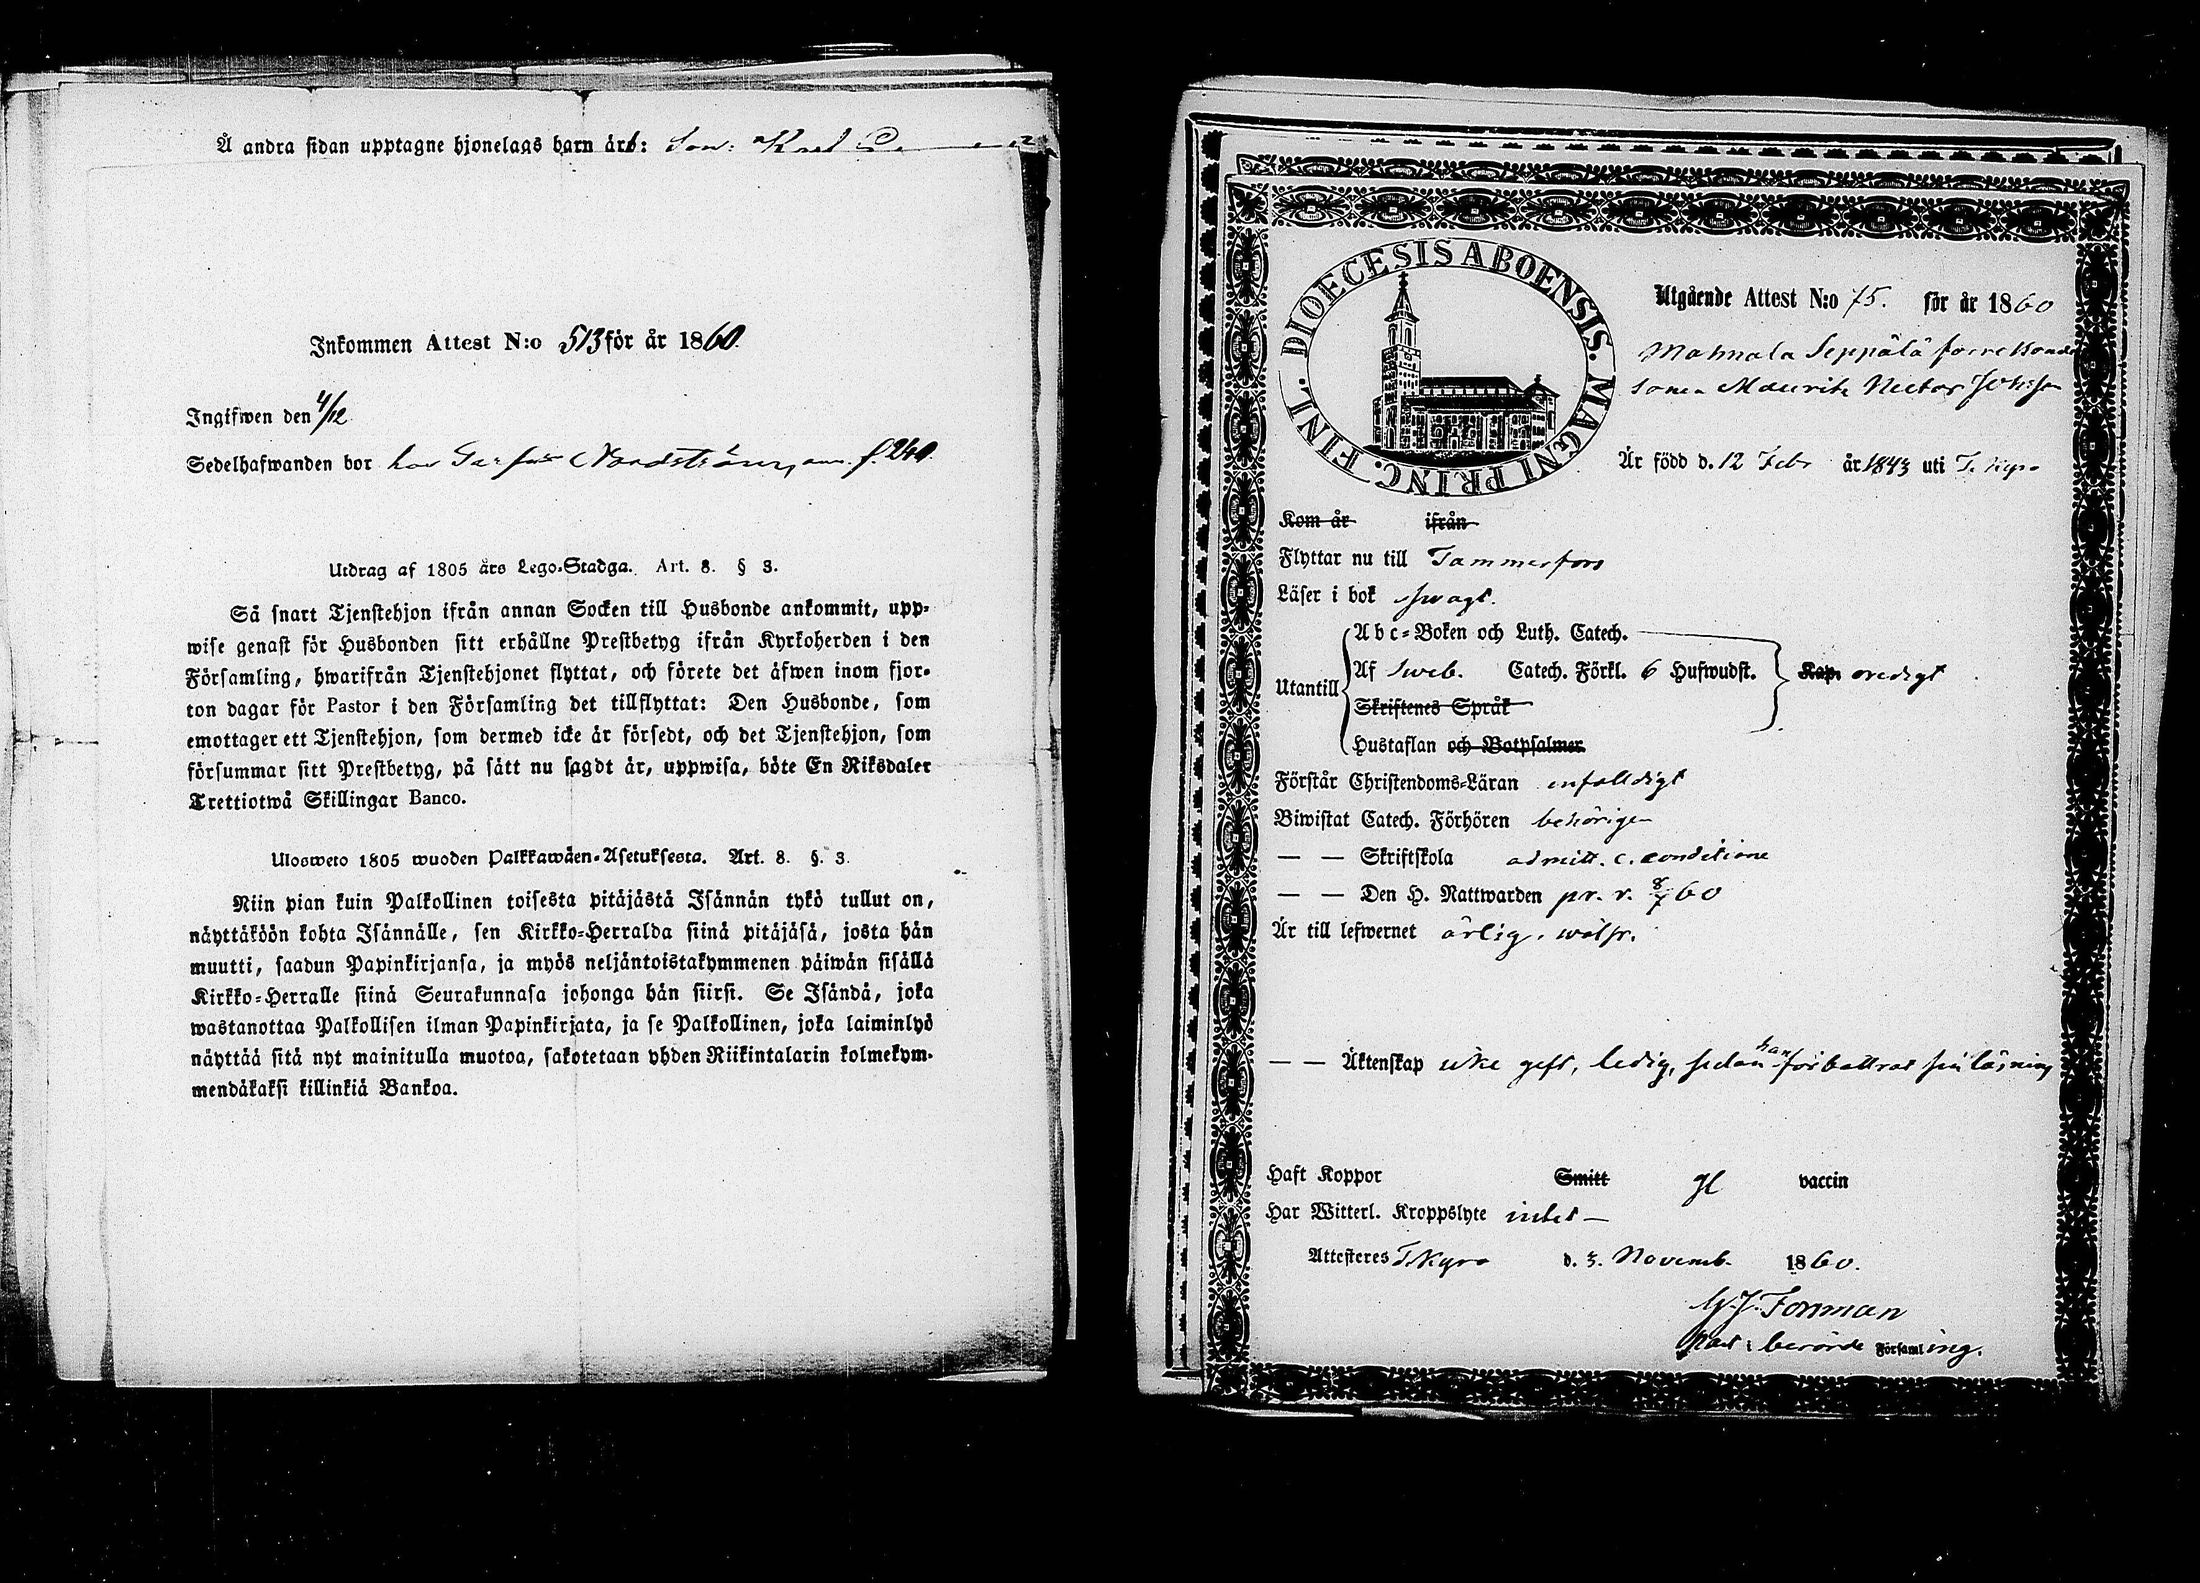 Å andra sidan upptagne hjonelags barn äro: Son: Karl
Inkommen Attest N:o 513 för år 1860.
Ingifwen den 4/12
Sedelhafwanden bor hos Nordström f. 240
Utdrag af 1805 års Lego-Stadga. Art. 8. § 3.
Så snart Tjenstehjon ifrån annan Socken till Husbonde ankommit, upp-
wise genast för Husbonden sitt erhållne Prestbetyg ifrån Kyrkoherden i den
Församling, hwarifrån Tjenstehjonet flyttat, och förete det äfwen inom fjor-
ton dagar för Pastor i den Församling det tillflyttat: Den Husbonde, som
emottager ett Tjenstehjon, som dermed icke är försedt, och det Tjenstehjon, som
försummar sitt Prestbetyg, på sätt nu sagdt är, uppwisa, böte En Riksdaler
Trettiotwå Skillingar Banco.
Ulosweto 1805 wuoden Palkkawäen-Asetuksesta. Art. 8. §. 3.
Niin pian kuin Palkollinen toisesta pitäjästä Isännän tykö tullut on,
näyttäköön kohta Isännälle, sen Kirkko-Herralda siinä pitäjäsä, josta hän
muutti, saadun Papinkirjansa, ja myös neljäntoistakymmenen päiwän sisällä
Kirkko-Herralle siinä Seurakunnasa johonga hän siirsi. Se Isändä, joka
wastanottaa Palkollisen ilman Papinkirjata, ja se Palkollinen, joka laiminlyö
näyttää sitä nyt mainitulla muotoa, sakotetaan yhden Riikintalarin kolmekym-
mendäkaksi killinkiä Bankoa.
DIOECESIS ABOENSIS. MAGNI PRINC. FINL.
Utgående Attest N:o 75. för år 1860
Mahnala Seppälä förre bonde
sonen Maurits Nector Johsson
Är född d. 12 Febr år 1843 uti T. Kyro
Kom år ifrån
Flyttar nu till Tammerfors
Läser i bok swagt.
Abc-Boken och Luth. Catech.
Utantill Af Sweb. Catech. Förkl. 6 Hufwudst. Kap. oredigt
Skriftenes Språk
Hustaflan och Botpsalmer
Förstår Christendoms-Läran enfalldigt
Biwistat Catech. Förhören behörigen
— — Skriftskola admitt. c. conditione
— — Den H. Nattwarden pr. v. 8/7 60
Är till lefwernet ärlig. wälfr.
— — Äktenskap icke gift, ledig, sedan han förbättrat sin läsning
Haft Koppor Smitt gl vaccin
Har Witterl. Kroppslyte intet —
Attesteras T. Kyro d. 3. Novemb. 1860.
G. J. Forsman
Past: berörde Församling.